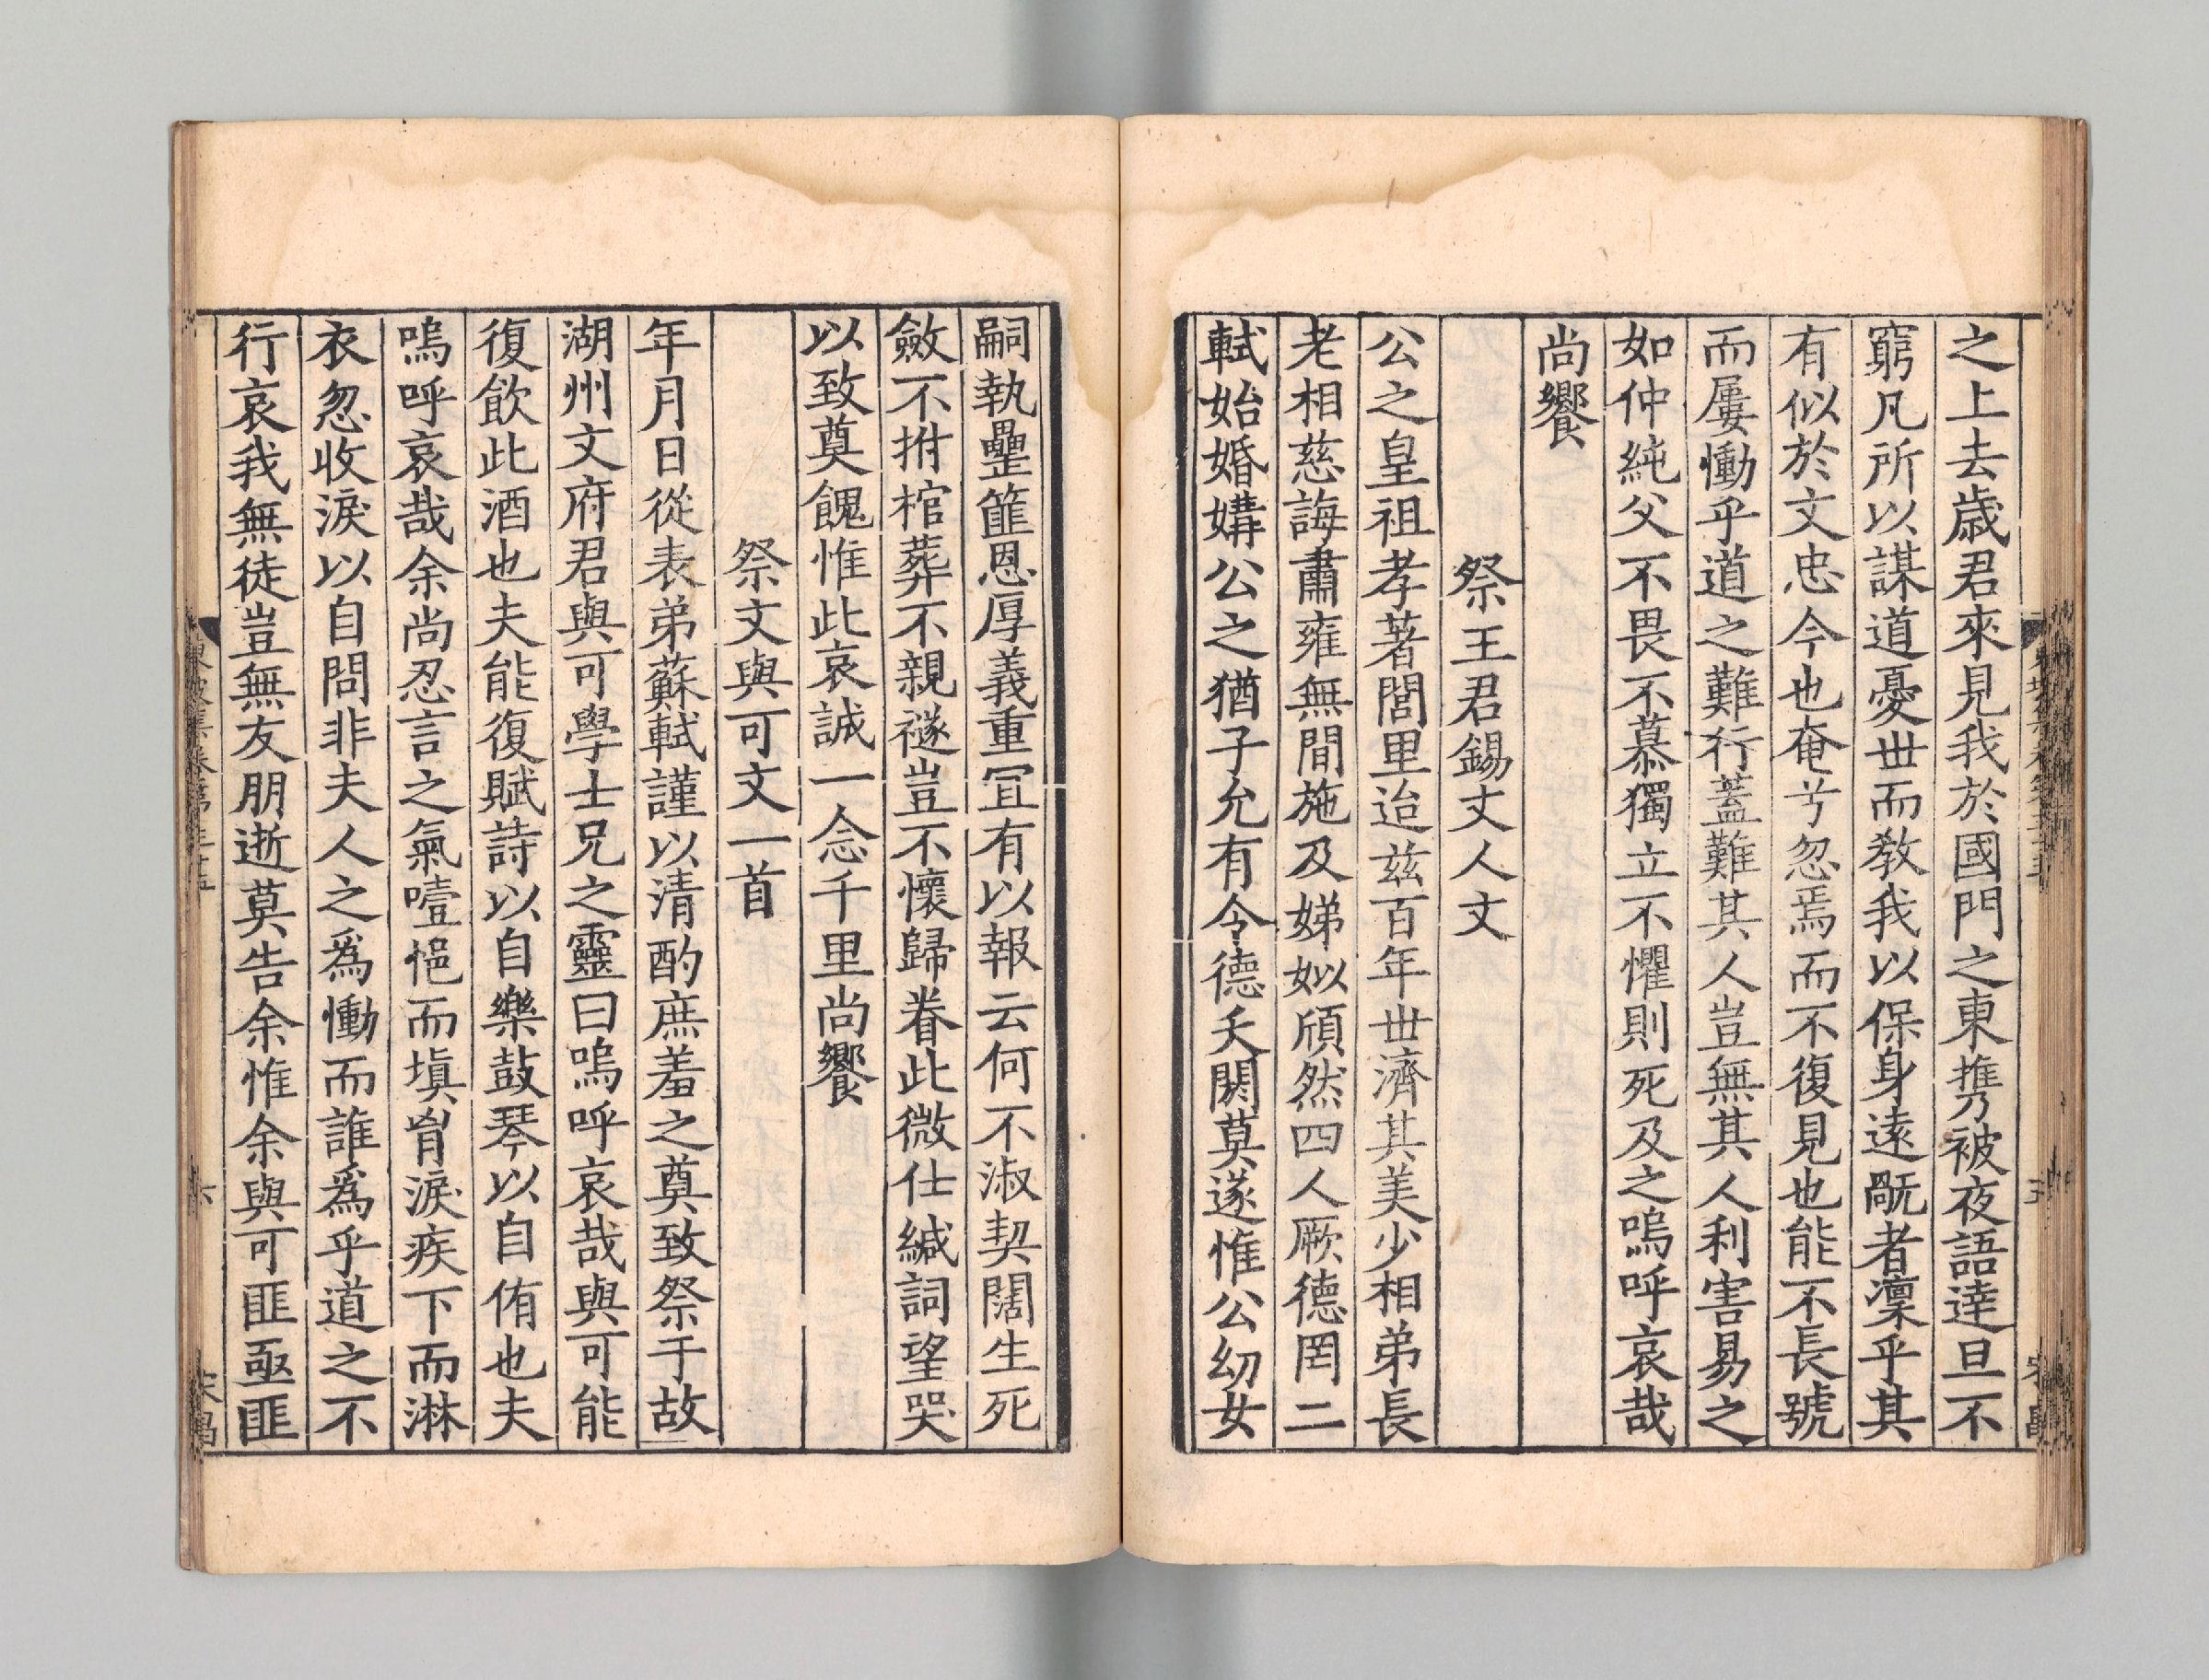 之上去歳君來見我於國門之東攜被夜語達旦不
窮凡所以謀道憂世而教我以保身遠禍者凜乎其
有似於文忠今也奄兮忽焉而不復見也能不長號
而屢慟乎道之難行蓋難其人豈無其人利害易之
如仲純父不畏不慕獨立不懼則死及之嗚呼哀哉
尚饗
祭王君錫丈人文
公之皇祖孝著閭里迨兹百年世濟其美少相弟長
老相慈誨肅雍無間施及娣姒頎然四人厥德罔二
軾始婚媾公之猶子允有令德夭閼莫遂惟公幼女
嗣執罍篚恩厚義重冝有以報云何不淑契闊生死
斂不拊棺葬不親襚豈不懷歸眷此微仕緘詞望哭
以致奠餽惟此哀誠一念千里尚饗
祭文與可文一首
年月日從表弟蘇軾謹以清酌庶羞之奠致祭于故
湖州文府君與可學士兄之靈曰嗚呼哀哉與可能
復飲此酒也夫能復賦詩以自樂鼓琴以自侑也夫
嗚呼哀哉余尚忍言之氣噎悒而填胷淚疾下而淋
衣忽收淚以自問非夫人之爲慟而誰爲乎道之不
行哀我無徒豈無友朋逝莫告余惟余與可匪亟匪